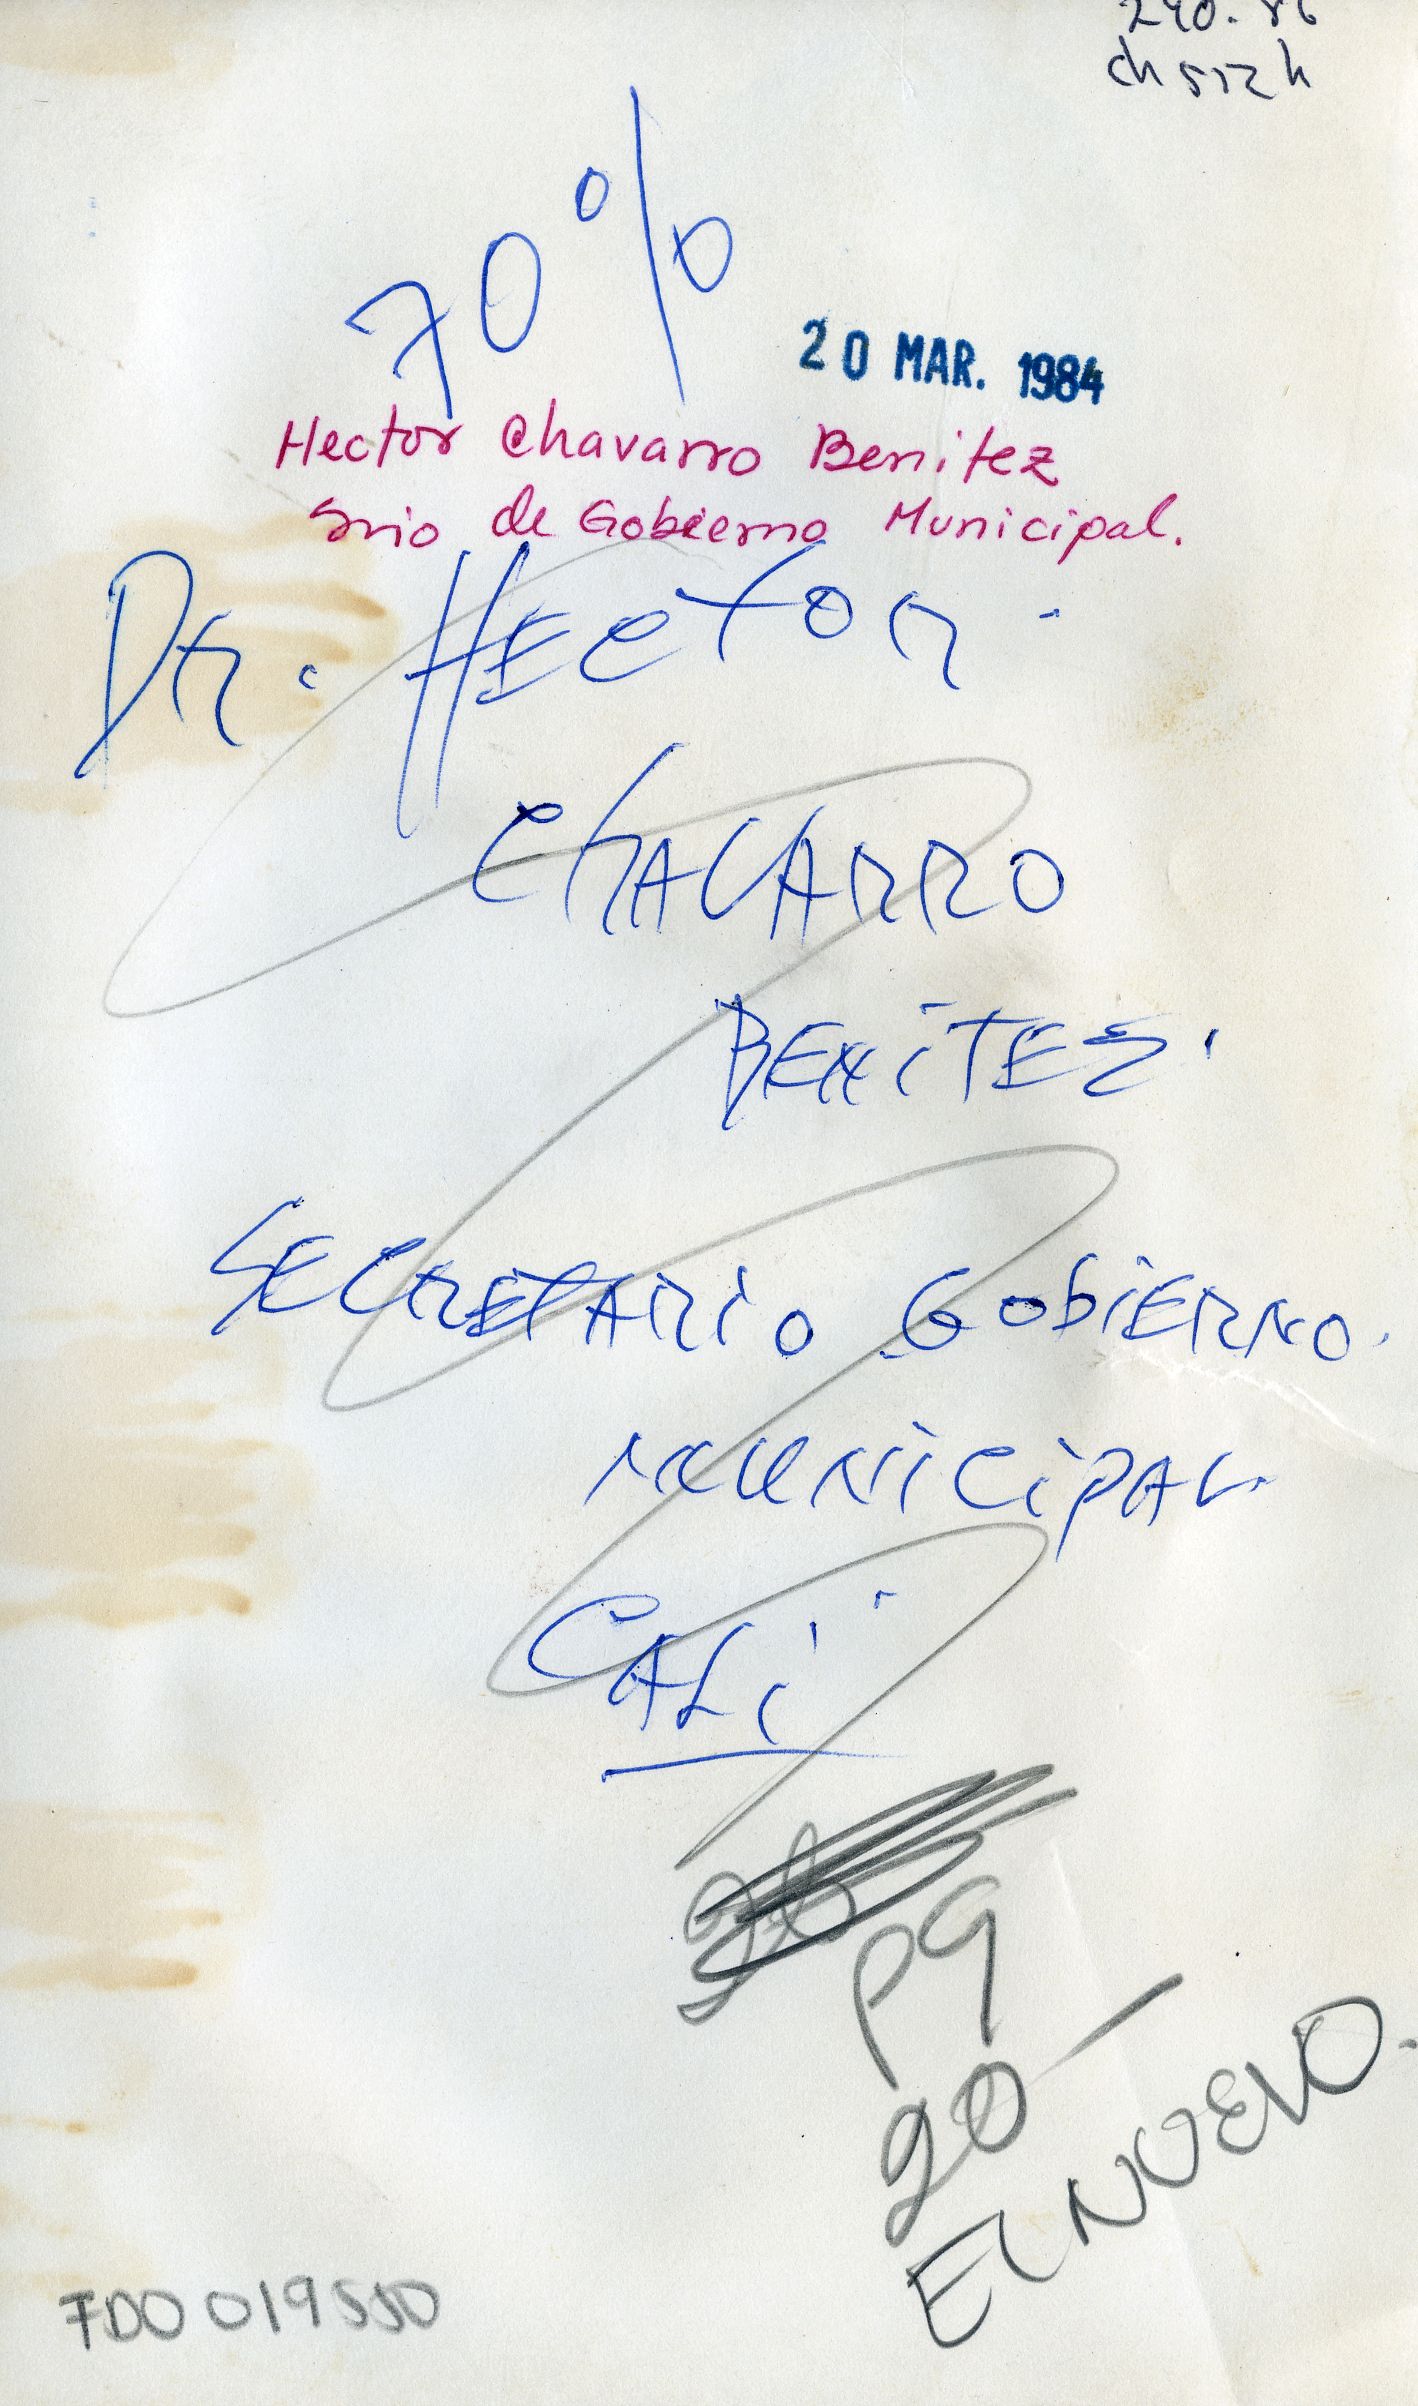 ch512h
70%
20 MAR. 1984
Hector Chavarro Benitez
Srio de Gobierno Municipal.
DR. HECTOR
ChAVARRO
BENiTEZ.
SECRETARiO GobiERNO.
MUNiCipAL
CALi
P9
20
EL NUEVO.
FDO 019550